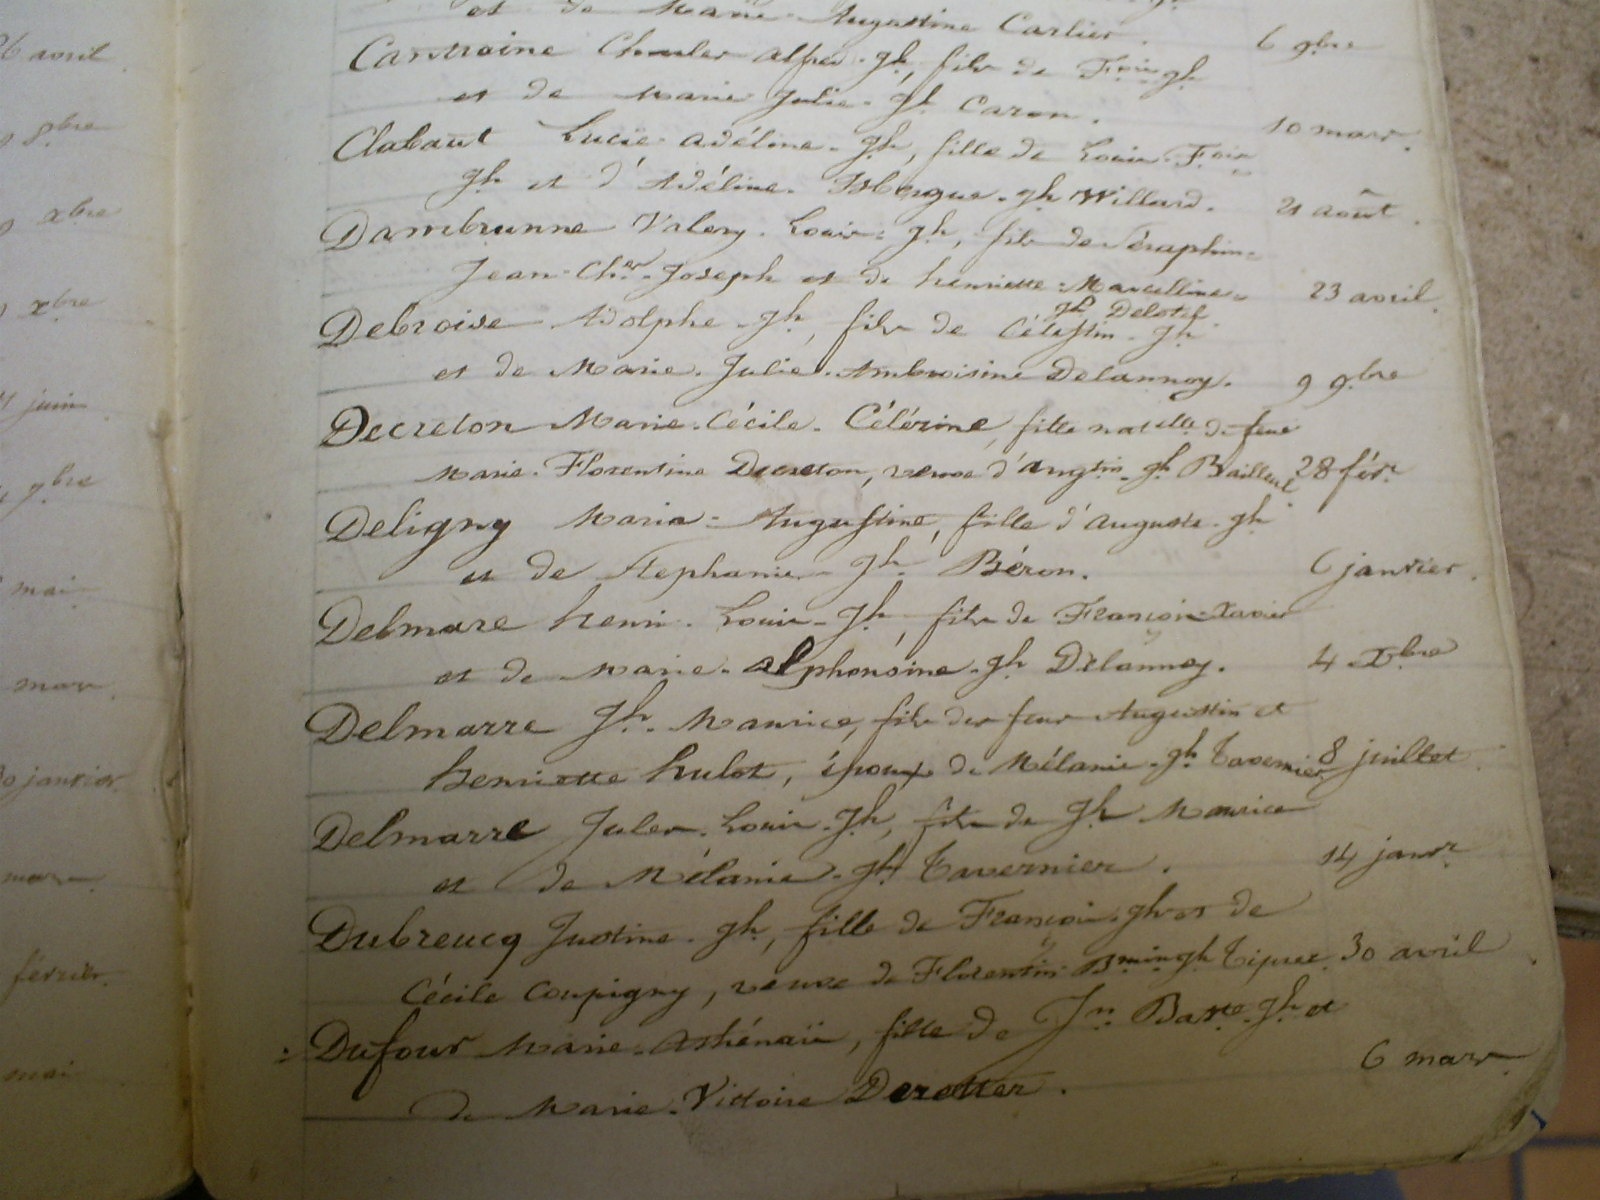 26 avril
8bre
xbre
xbre
juin
7bre
mai
mars
30 janvier
mars
février
mai
et de Marie-Augustine Carlier. 6 9bre
Cantraine Charles Alfred-Jh, fils de Fois Jh
et de Marie Julie-Jh Caron. 10 mars.
Clabaut Lucie-Adéline-Jh, fille de Louis-Fois
Jh et d'Adéline-Isbergue-Jh Willard. 21 août.
Dambrunne Valery-Louis-Jh, fils de Séraphin-
Jean-Ches-Joseph et de henriette-Marcelline- 23 avril
Jh Delotel.
Debroise Adolphe-Jh, fils de Célestin-Jh
et de Marie-Julie-Ambroisine Delannoy. 9 9bre
Decreton Marie-Cécile-Célérine, fille natelle de feue
Marie-Florentine Decreton, veuve d'Augtin-Jh Bailleul 28 févr
Deligny Maria-Augustine, fille d'Auguste-Jh
et de Stephanie-Jh Béron. 6 janvier.
Delmare henri-Louis-Jh, fils de François-Xavier
et de Marie-Alphonsine-Jh Délannoy. 4 Xbre
Delmarre Jh-Maurice, fils des feus Augustin et
henriette hulot, époux de Mélanie-Jh Tavernier 8 juillet
Delmarre Jules-Louis-Jh, fils de Jh Maurice
et de Mélanie-Jh Tavernier. 14 janvr
Dubreucq Justine-Jh, fille de François-Jh et de
Cécile Coupigny, veuve de Florentin-Bminjh Tiprez. 30 avril
: Dufour Marie-Athénaïs, fille de Jn Baste-Jh et
de Marie-Victoire Deretter. 6 mars